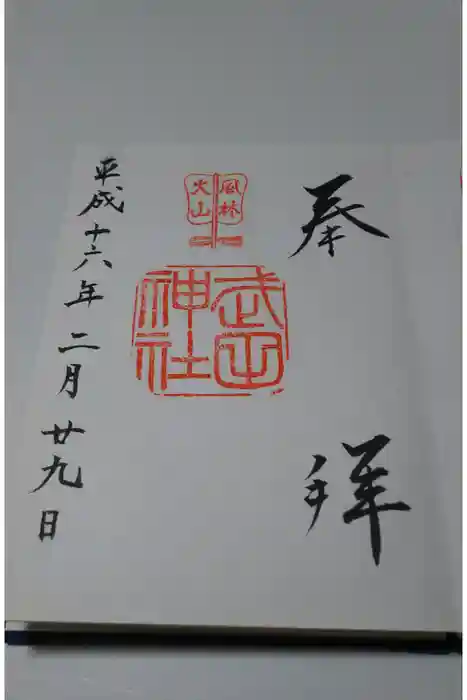 奉拝
風林
火山
武田
神社
平成十六年二月廿九日